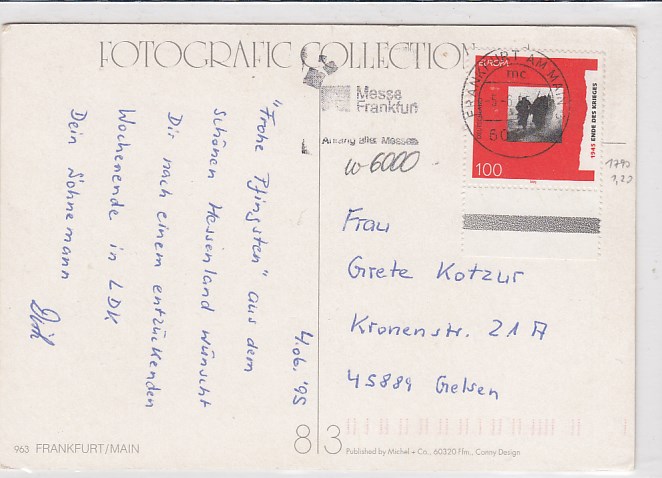 FOTOGRAFIC COLLECTION
4.06.'95
"Frohe Pfingsten" aus dem
schönen Hessenland wünscht
Dir nach einem entzückenden
Wochenende in LDK
Dein Söhnemann
Dirk
Messe
Frankfurt
w-6000
FRANKFURT AM MAIN
mc
EUROPA
DEUTSCHLAND
1945 ENDE DES KRIEGES
100
1790
1,20
Frau
Grete Kotzur
Kronenstr. 21 A
45889 Gelsen
963 FRANKFURT/MAIN
83
Published by Michel + Co., 60320 Ffm., Conny Design